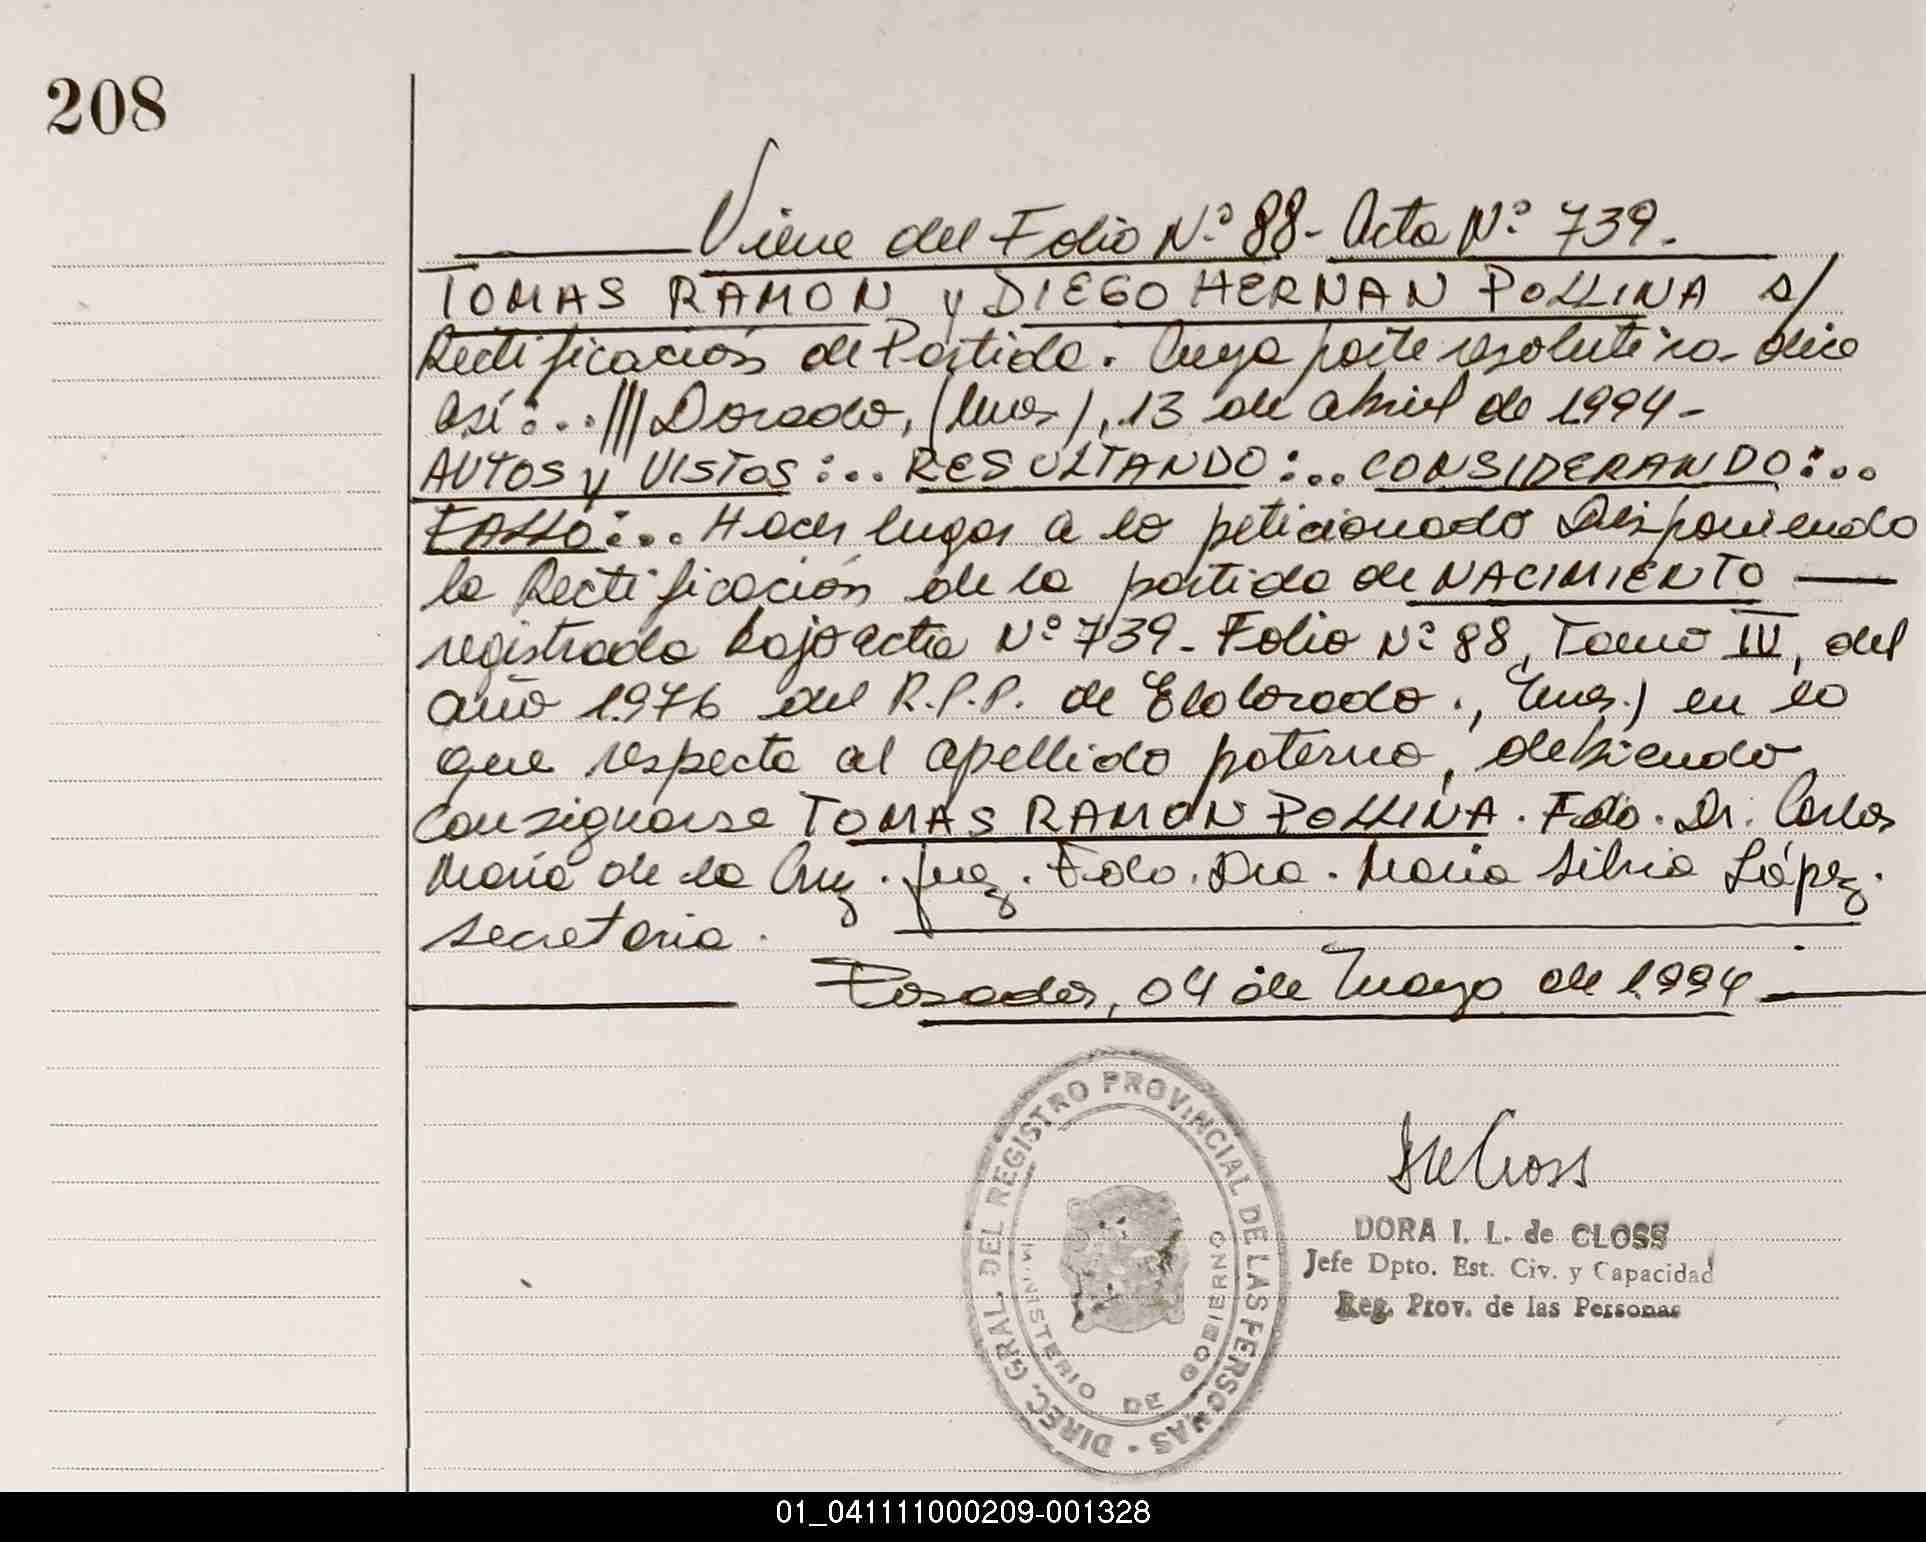 208
Viene del Folio Nº 88 - Acta Nº 739.
TOMAS RAMON y DIEGO HERNAN POLLINA s/
Rectificación de Partida. Cuya parte resolutiva dice
así:..///Dorado, (Mnes), 13 de abril de 1994-
AUTOS y VISTOS:.. RESULTANDO:.. CONSIDERANDO:..
FALLO:... Hacer lugar a lo peticionado Disponiendo
la Rectificación de la partida de NACIMIENTO
registrada bajo acta Nº 739- Folio Nº 88, Tomo IV, del
año 1976 del R.P.P. de Eldorado., Mnes.) en lo
que respecta al apellido paterno, debiendo
consignarse TOMAS RAMON POLLINA. Fdo. Dr. Carlos
María de la Cruz. Juez. Fdo. Dra. Maria Silvia López.
secretaria.
Posadas, 04 de Mayo de 1994
DIREC. GRAL. DEL REGISTRO PROVINCIAL DE LAS PERSONAS
MINISTERIO DE GOBIERNO
DORA I. L. de CLOSS
Jefe Dpto. Est. Civ. y Capacidad
Reg. Prov. de las Personas
01_041111000209-001328